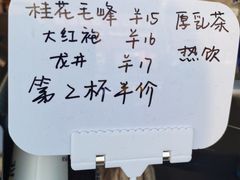 桂花毛峰 ¥15 厚乳茶
大红袍 ¥16
龙井 ¥17 热饮
第2杯半价